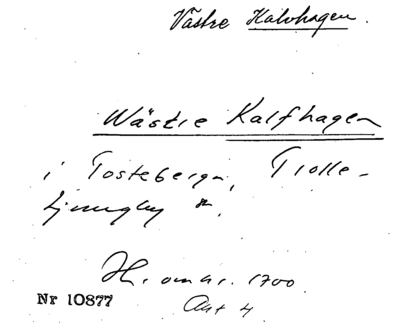 Västre Kalvhagen.
Wästre Kalfhagen
i Tosteberga, Trolle-
ljungby sn.
H. omkr. 1700
Nr 10877
Akt 4